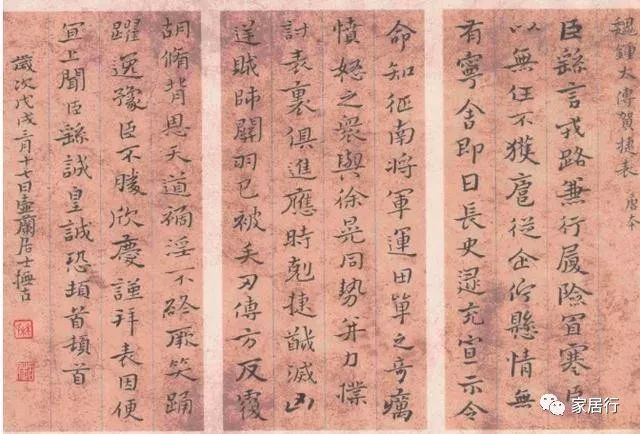 魏鍾太傅賀捷表 唐本
臣繇言戎路兼行履險冒寒臣
以無任不獲扈從企佇懸情無
有寧舍即日長史逯充宣示令
命知征南將軍運田單之奇厲
憤怒之衆與徐晃同勢并力撲
討表裏俱進應時剋捷馘滅凶
逆賊帥關羽已被矢刃傅方反覆
胡脩背恩天道禍淫不終厥笑踴
躍逸豫臣不勝欣慶謹拜表因便
宜上聞臣繇誠皇誠恐頓首頓首
歲次戊戌三月十七日壺蘭居士撫古
家居行